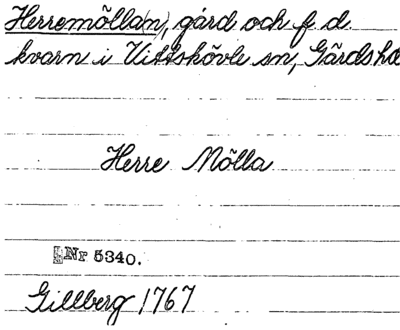 Herremölla(n), gård och f d.
kvarn i Vittskövle sn, Gärds hd
Herre Mölla
Nr 5340.
Gillberg 1767